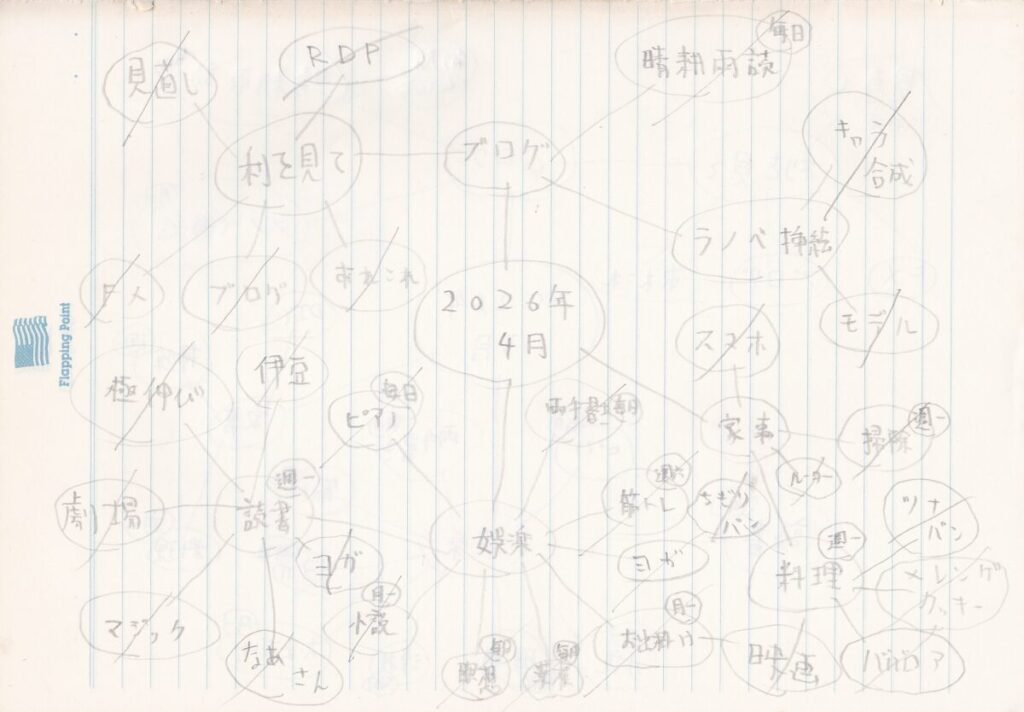 毎日
RDP
見直し
晴耕雨読
キャラ
合成
ブログ
利を見て
ラノベ 挿絵
ダメ
ブログ
あれこれ
2026年
4月
モデル
スマホ
Flapping Point
伊豆
極伸び
毎日
ピアノ
家事
週一
掃除
週一
読書
劇場
筋トレ
ちぎり
パン
ルーター
ツナ
パン
娯楽
週一
料理
ヨガ
ヨガ
メレンゲ
クッキー
月一
小説
月一
お出掛け
マジック
なあ
さん
毎日
瞑想
毎日
映画
ババロア